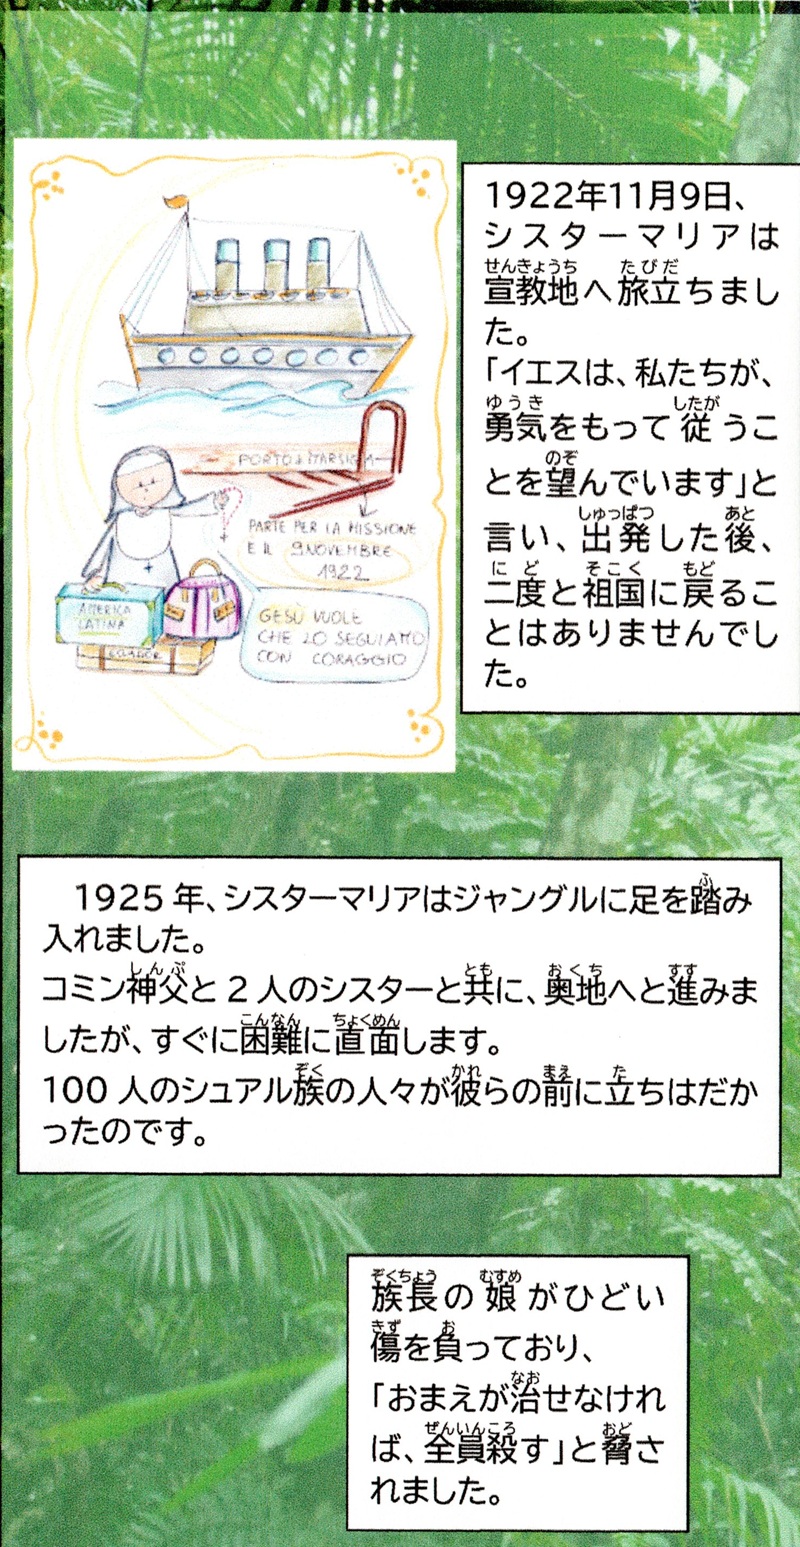 1922年11月9日、
シスターマリアは
宣教地へ旅立ちまし
た。
「イエスは、私たちが、
勇気をもって従うこ
とを望んでいます」と
言い、出発した後、
二度と祖国に戻るこ
とはありませんでし
た。
PORTO di MARSIGLIA
PARTE PER LA MISSIONE
E IL 9 NOVEMBRE
1922
AMERICA
LATINA
ECUADOR
GESÙ VUOLE
CHE LO SEGUIAMO
CON CORAGGIO
1925年、シスターマリアはジャングルに足を踏み
入れました。
コミン神父と2人のシスターと共に、奥地へと進みま
したが、すぐに困難に直面します。
100人のシュアル族の人々が彼らの前に立ちはだか
ったのです。
族長の娘がひどい
傷を負っており、
「おまえが治せなけれ
ば、全員殺す」と脅さ
れました。